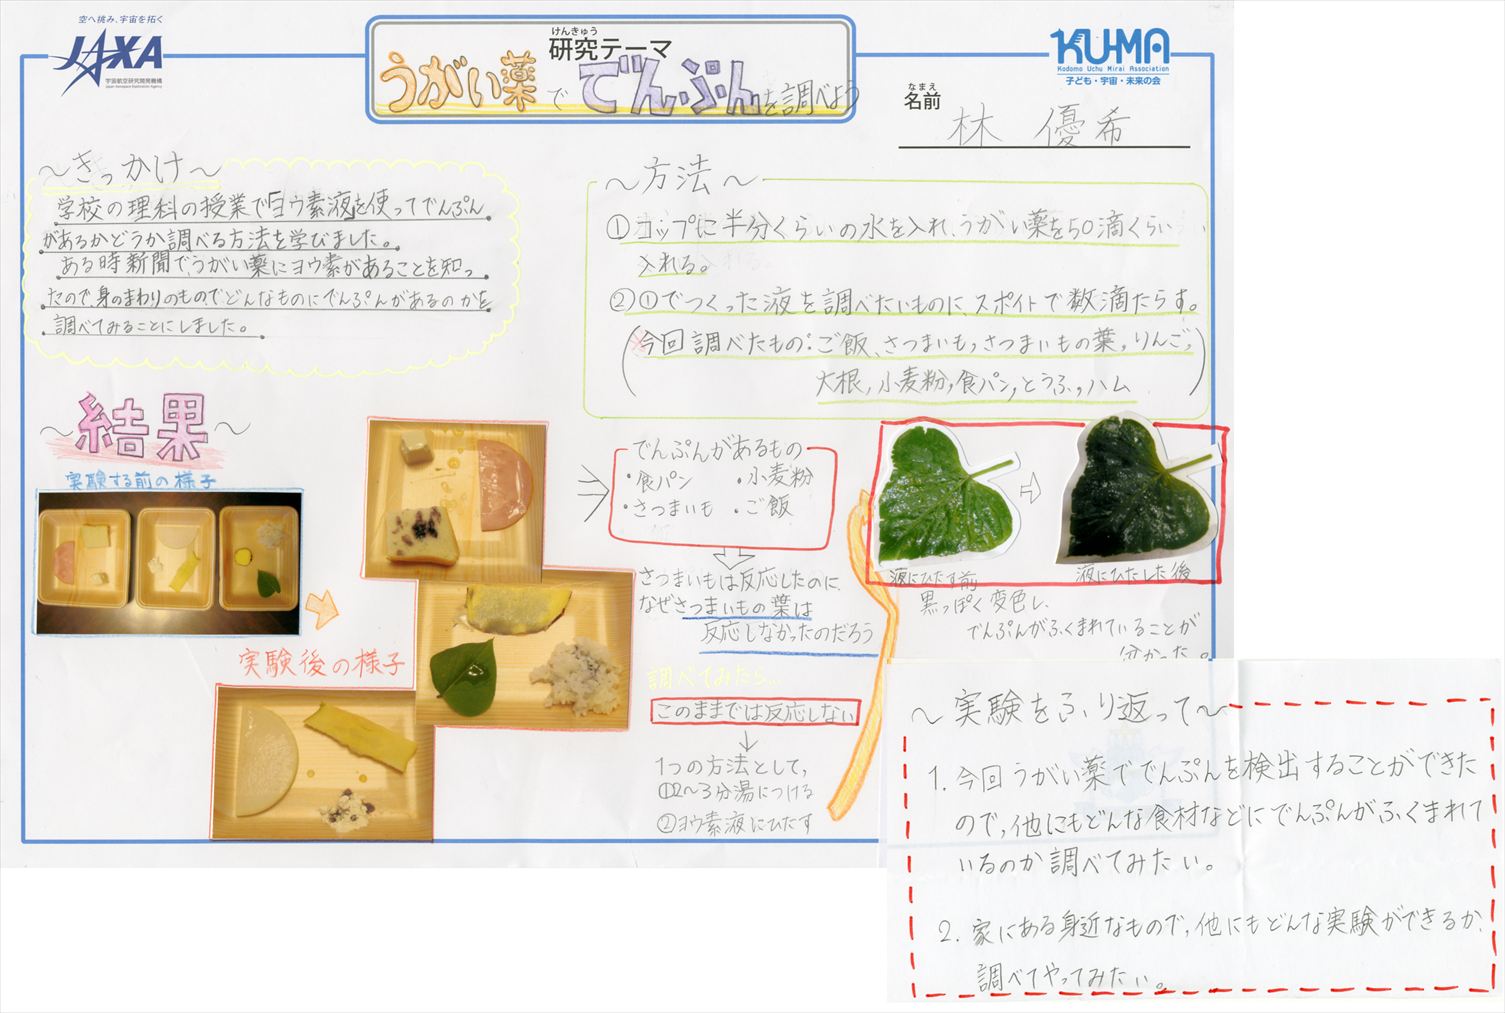 空へ挑み、宇宙を拓く
JAXA
宇宙航空研究開発機構
Japan Aerospace Exploration Agency
けんきゅう
研究テーマ
うがい薬ででんぷんを調べよう
KU-MA
Kodomo Uchu Mirai Association
子ども・宇宙・未来の会
なまえ
名前
林 優希
～きっかけ～
学校の理科の授業で「ヨウ素液」を使ってでんぷん
があるかどうか調べる方法を学びました。
ある時新聞で、うがい薬にヨウ素があることを知っ
たので、身のまわりのものでどんなものにでんぷんがあるのかを
調べてみることにしました。
～方法～
①コップに半分くらいの水を入れ、うがい薬を50滴くらい
入れる。
②①でつくった液を調べたいものに、スポイトで数滴たらす。
(※今回調べたもの:ご飯、さつまいも,さつまいもの葉,りんご,
大根,小麦粉,食パン,とうふ,ハム)
～結果～
実験する前の様子
実験後の様子
でんぷんがあるもの
・食パン ・小麦粉
・さつまいも ・ご飯
さつまいもは反応したのに、
なぜさつまいもの葉は
反応しなかったのだろう
調べてみたら…
このままでは反応しない
1つの方法として,
①2～3分湯につける
②ヨウ素液にひたす
液にひたす前
液にひたした後
黒っぽく変色し、
でんぷんがふくまれていることが
分かった。
～実験をふり返って～
1. 今回うがい薬ででんぷんを検出することができた
ので,他にもどんな食材などにでんぷんがふくまれて
いるのか調べてみたい。
2. 家にある身近なもので,他にもどんな実験ができるか、
調べてやってみたい。